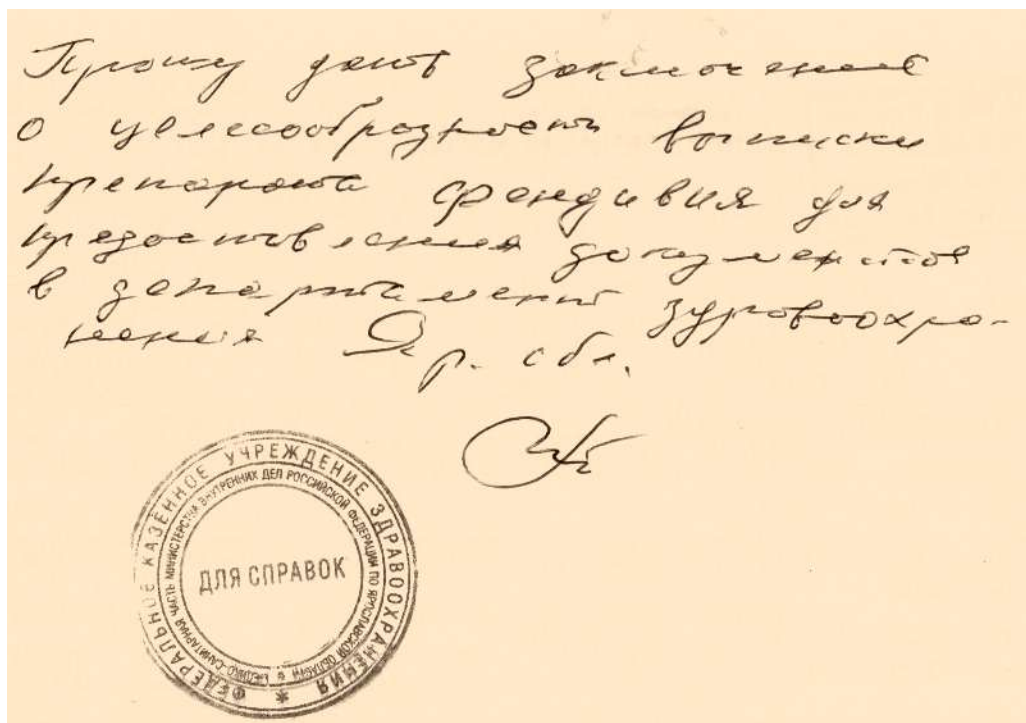 Прошу дать заключение
о целесообразности выписки
препарата фендивия для
предоставления документов
в департамент здравоохра-
нения Яр. обл.
ФЕДЕРАЛЬНОЕ КАЗЁННОЕ УЧРЕЖДЕНИЕ ЗДРАВООХРАНЕНИЯ *
МЕДИКО-САНИТАРНАЯ ЧАСТЬ МИНИСТЕРСТВА ВНУТРЕННИХ ДЕЛ РОССИЙСКОЙ ФЕДЕРАЦИИ ПО ЯРОСЛАВСКОЙ ОБЛАСТИ
ДЛЯ СПРАВОК